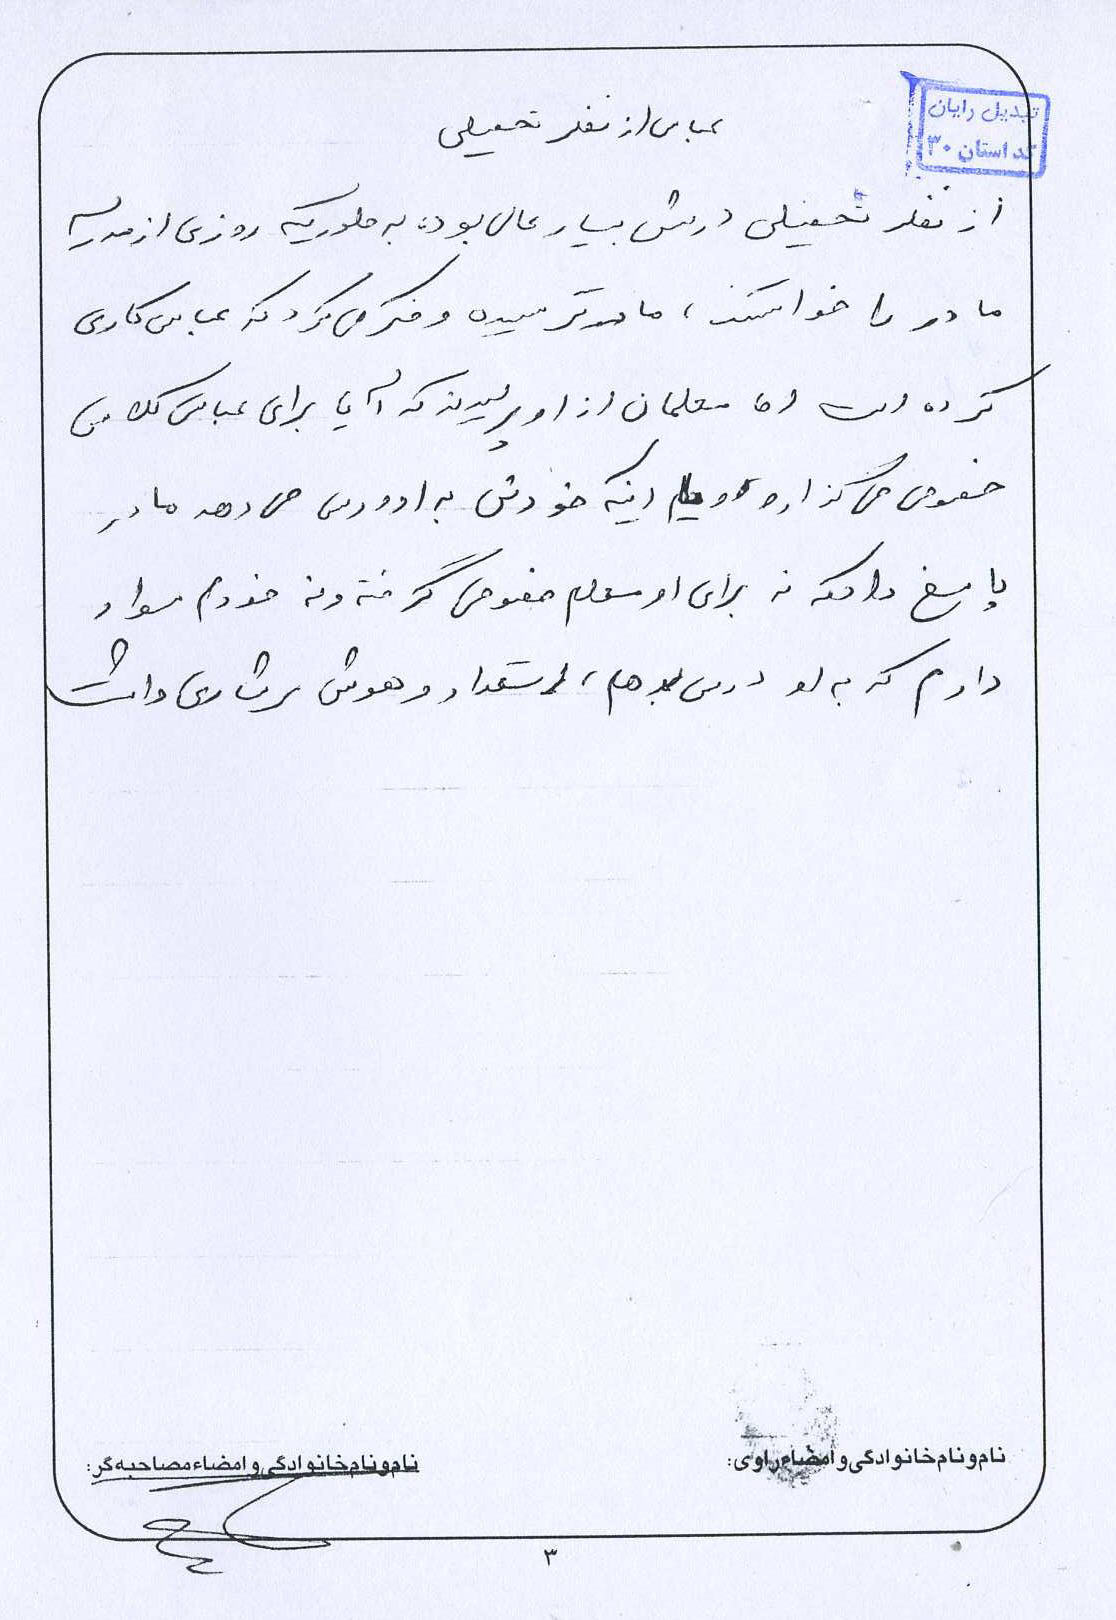 تبدیل رایان
کد استان ۳۰
عباس از نظر تحصیلی
از نظر تحصیلی درسش بسیار عالی بود، به طوریکه روزی از مدرسه
مادر را خواستند، مادر ترسیده و فکر می کرد که عباس کاری
کرده است اما معلمان از او پرسیدند که آیا برای عباس کلاس
خصوصی می گذارد و یا اینکه خودش به او درس می دهد مادر
پاسخ داد که نه برای او معلم خصوصی گرفته و نه خودم سواد
دارم که به او درس بدهم، استعداد و هوش سرشاری داشت
نام و نام خانوادگی و امضاء راوی:
نام و نام خانوادگی و امضاء مصاحبه گر:
۳